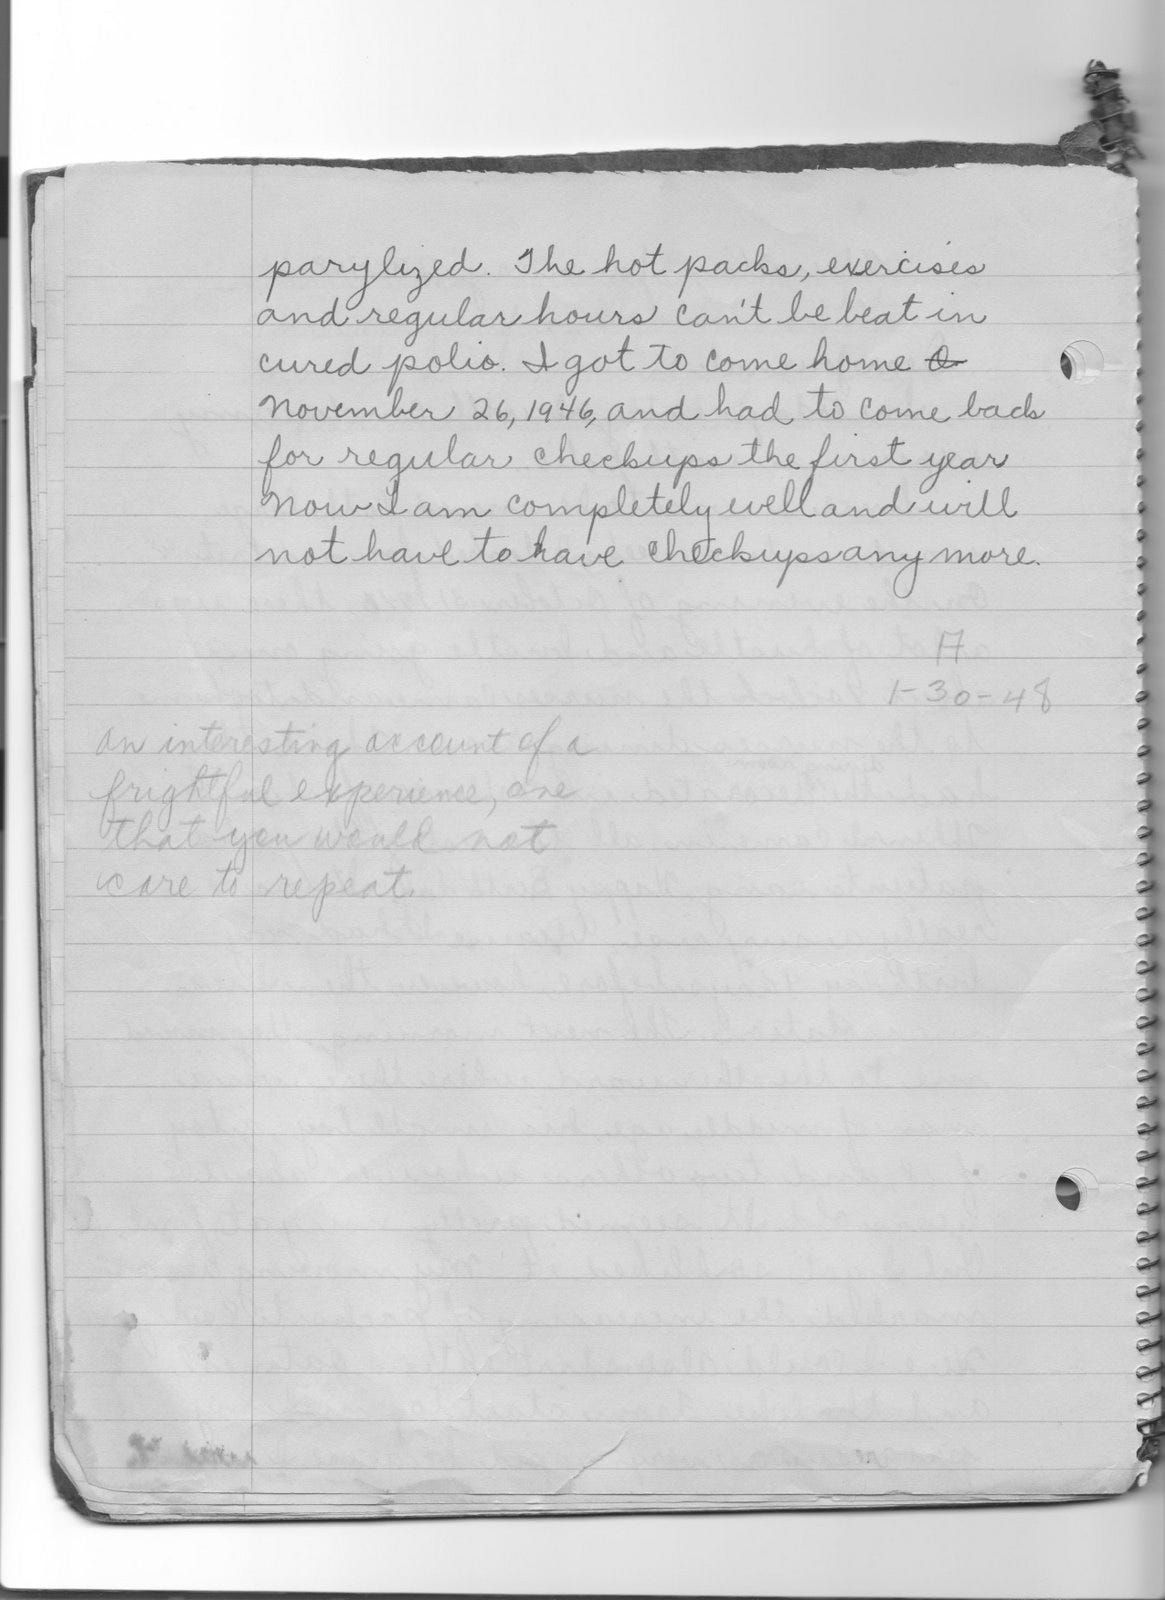 parylized. The hot packs, exercises
and regular hours can't be beat in
cured polio. I got to come home
November 26, 1946, and had to come back
for regular checkups the first year
Now I am completely well and will
not have to have checkups any more.
A
1-30-48
an interesting account of a
frightful experience, one
that you would not
care to repeat.